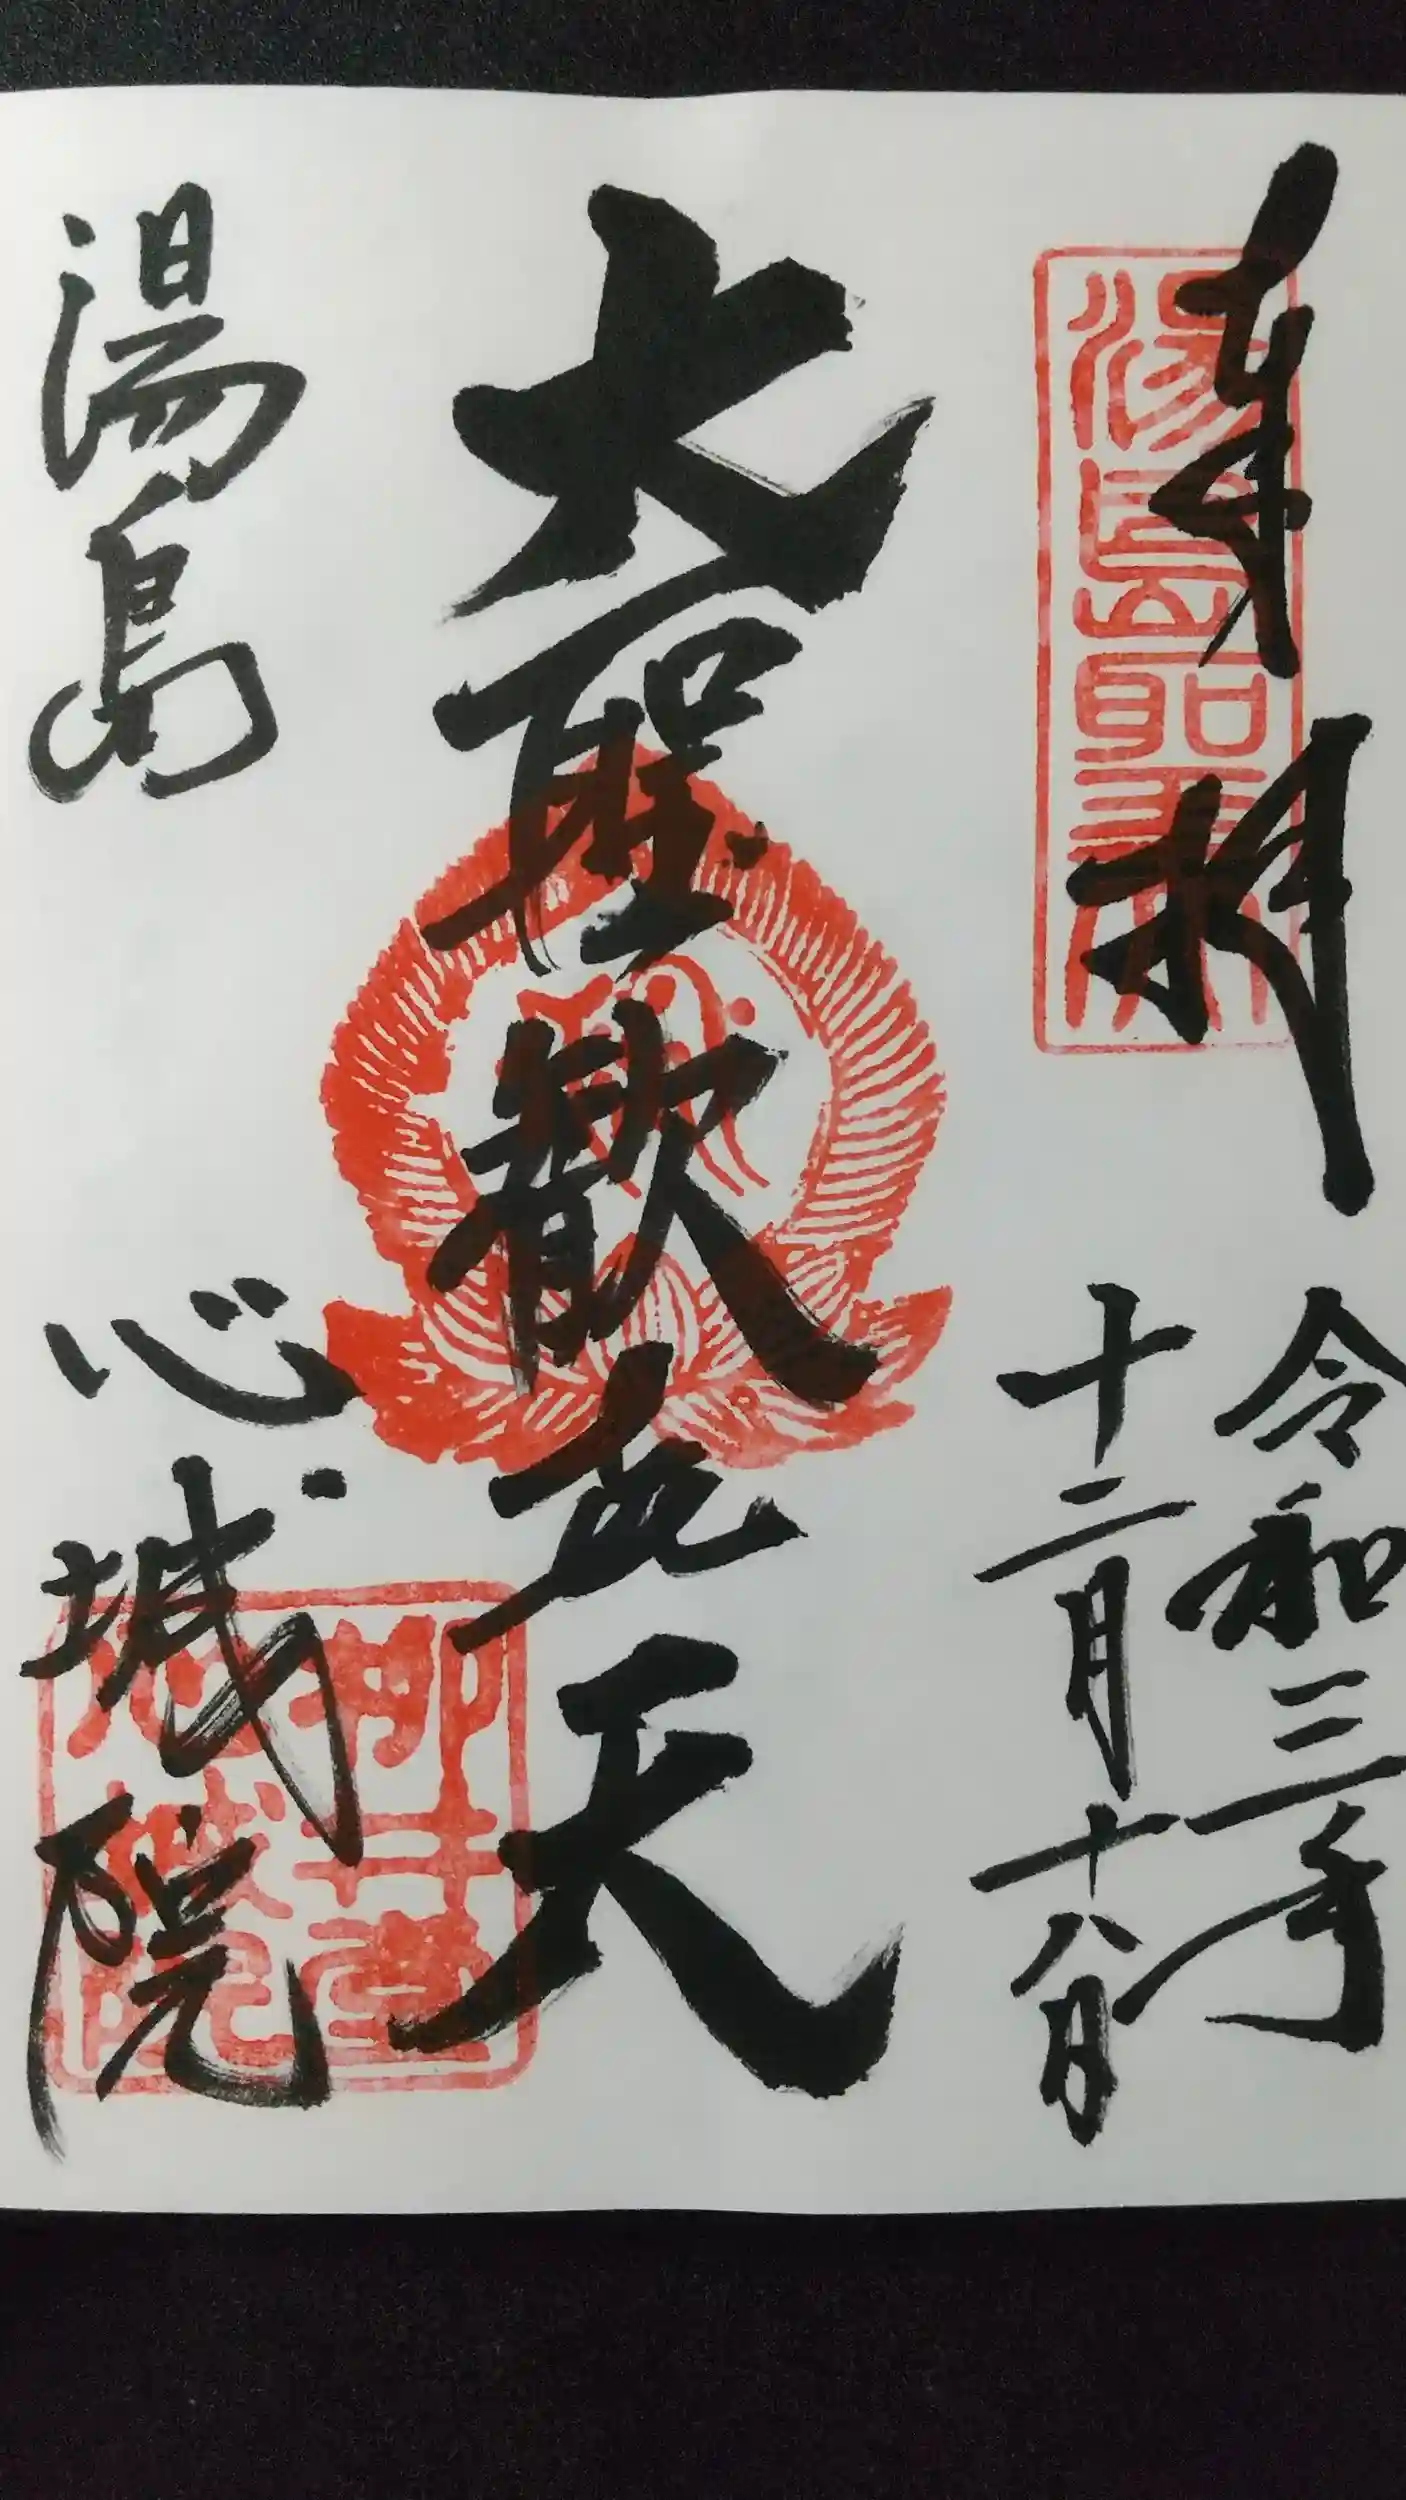 奉拝
湯島聖天
令和三年
十二月十八日
大聖歓喜天
湯島
心城院
柳井堂
心城院